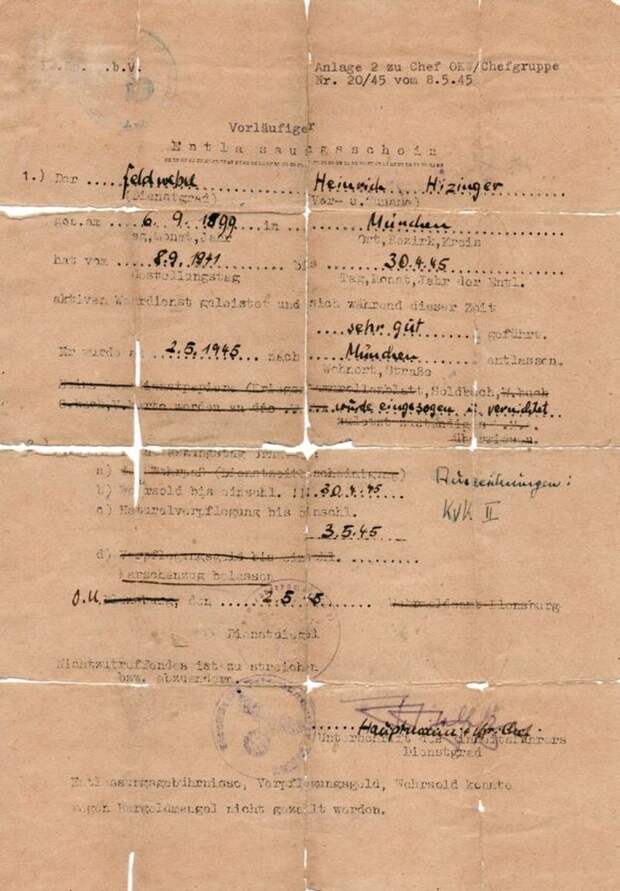 .b.V.
Anlage 2 zu Chef OKW/Chefgruppe
Nr. 20/45 vom 8.5.45
Vorläufiger
Entlassungsschein
1.) Der ... Feldwebel ... Heinrich Hizinger
(Dienstgrad) (Vor- u. Zuname)
geb.am 6.9.1899 in München
Tag,Monat,Jahr Ort,Bezirk,Kreis
hat vom 8.9.1941 bis 30.4.45
Gestellungstag Tag,Monat,Jahr der Entl.
aktiven Wehrdienst geleistet und sich während dieser Zeit
sehr gut geführt.
Er wurde am 2.5.1945 nach München entlassen.
Wohnort,Straße
Soldbuch, W.buch
wurde eingezogen u. vernichtet
a) Wehrpaß (Dienstzeitbescheinigung)
b) Wehrsold bis einschl. 30.4.45
Auszeichnungen:
c) Naturalverpflegung bis einschl.
KVK II
3.5.45
d) Verpflegungsgeld bis einschl.
Marschanzug belassen
O.U. Flensburg, den 2.5.45 Flensburg
Dienstsiegel
Nichtzutreffendes ist zu streichen
bzw. abzuändern.
Hauptmann
Unterschrift des
Dienstgrad
Entlassungsgebührnisse, Verpflegungsgeld, Wehrsold konnte
wegen Bargeldmangel nicht gezahlt werden.